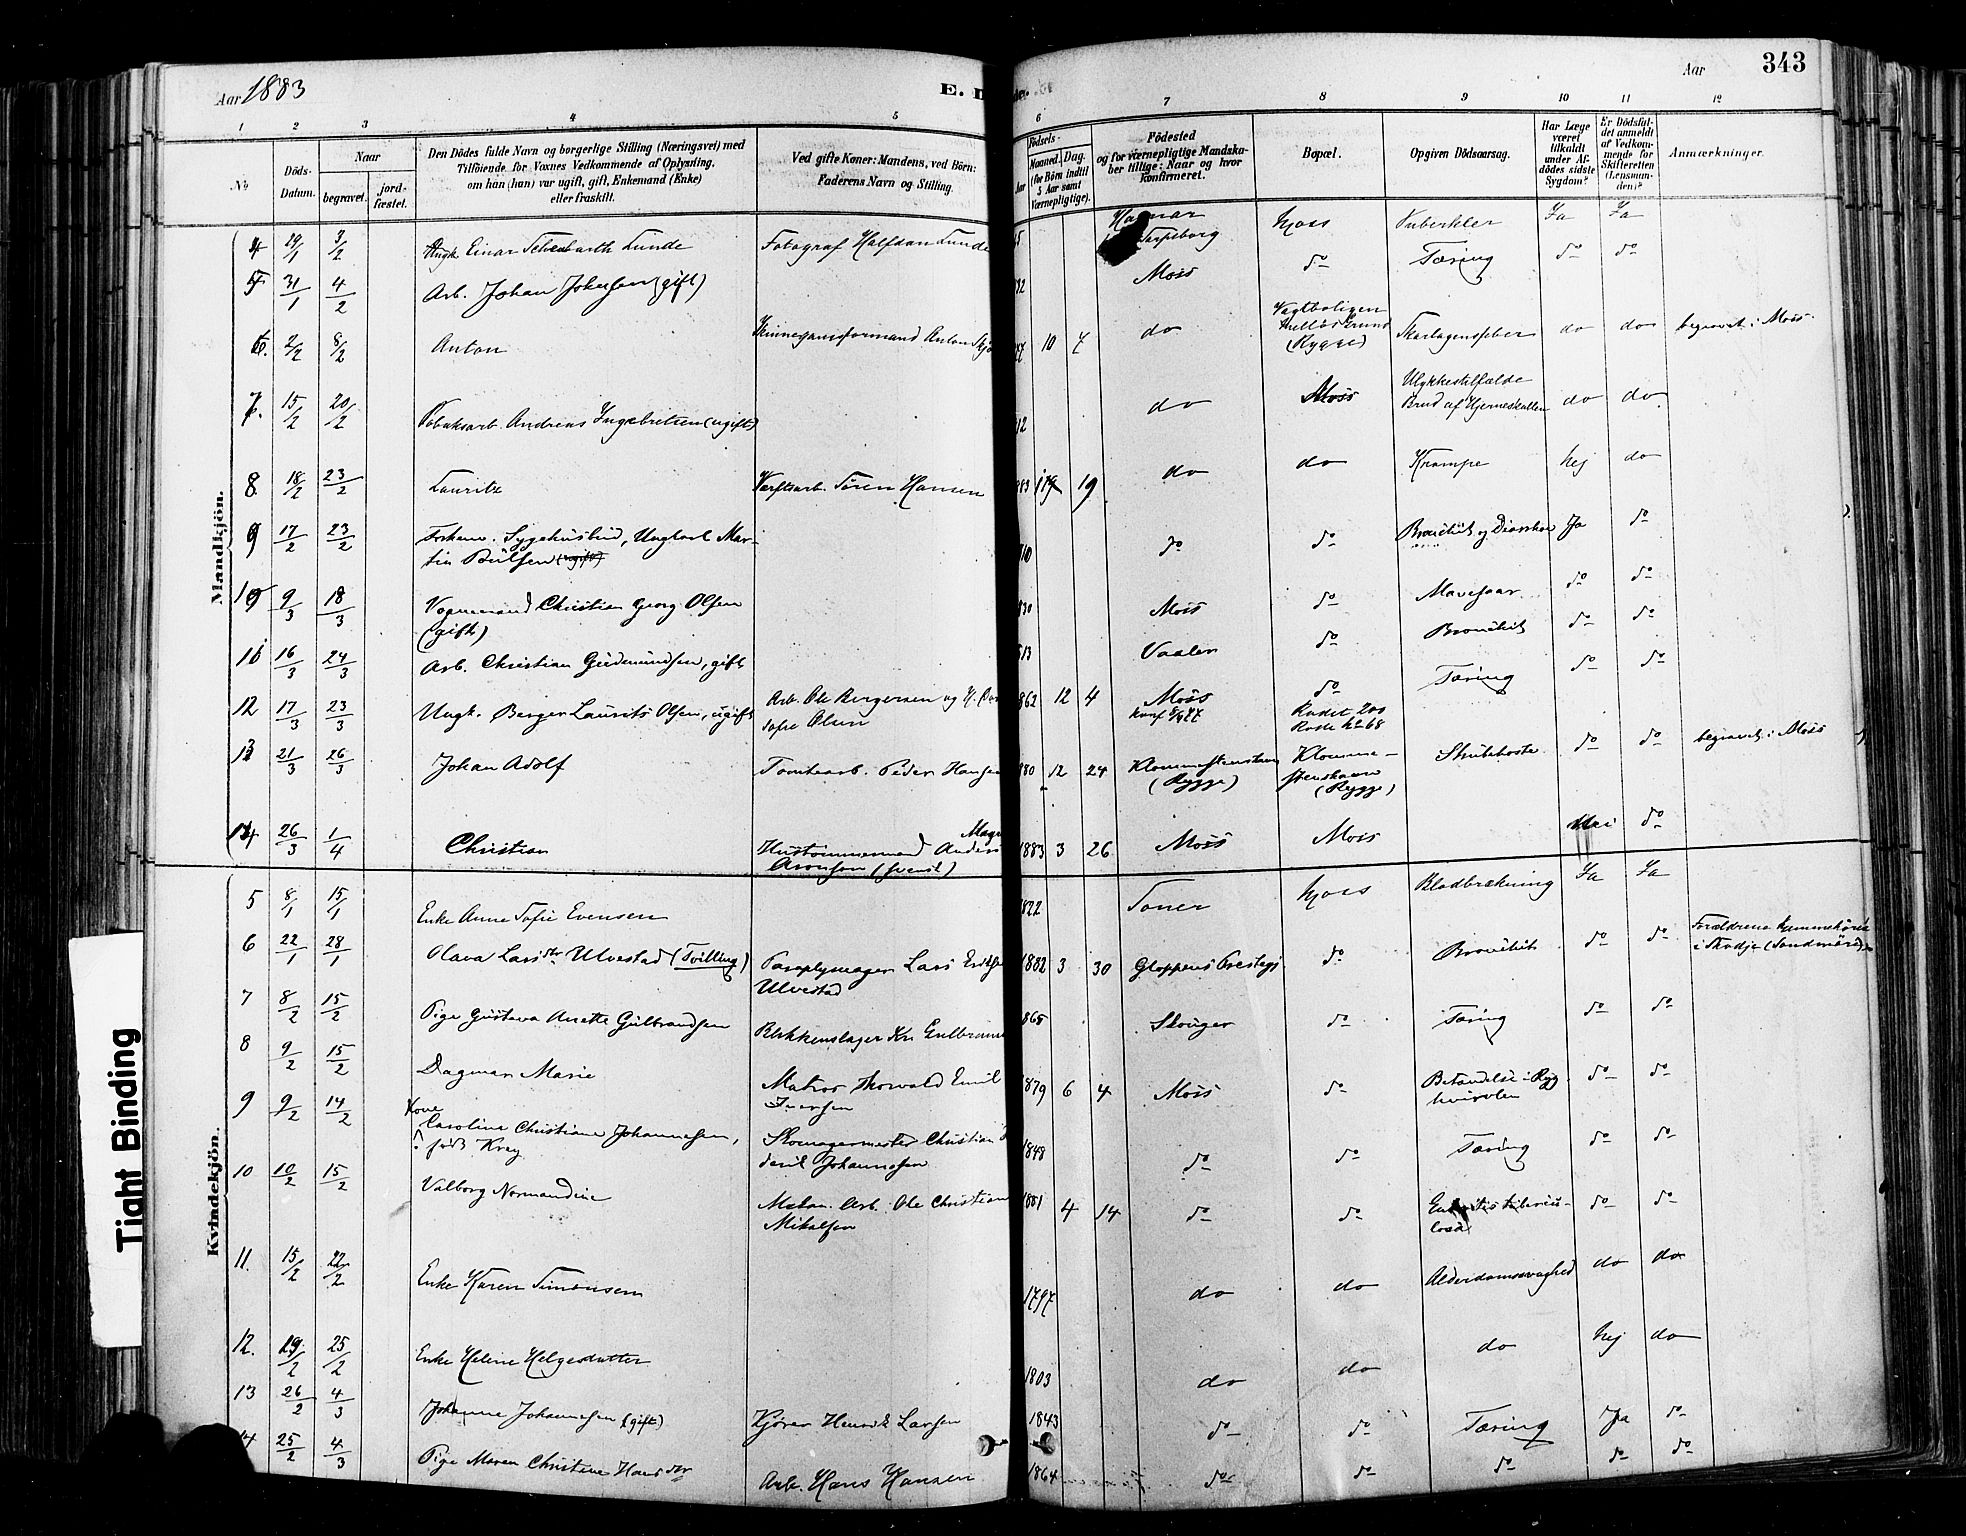 Aar 1883
E. D
de.
Aar
343
1 2 3 4 5 6 7 8 9 10 11 12
No
Döds-
Datum.
Naar
begravet.
jord-
fæstet.
Den Dödes fulde Navn og borgerlige Stilling (Næringsvei) med
Tilföiende for Voxnes Vedkommende af Oplysning,
om hàn (han) var ugift, gift, Enkemand (Enke)
eller fraskilt.
Ved gifte Koner: Mandens, ved Börn:
Faderens Navn og Stilling.
Födsels-
Aar
Maaned. Dag.
(for Börn indtil
5 Aar samt
Værnepligtige).
Födested
og for værnepligtige Mandska-
ber tillige: Naar og hvor
konfirmeret.
Bopæl.
Opgiven Dödsaarsag.
Har Læge
været
tilkaldt
under Af-
dödes sidste
Sygdom?
Er Dödsfal-
det anmeldt
af Vedkom-
mende for
Skifteretten
(Lensman-
den)?
Anmærkninger.
Mandkjön.
4 19/1 3/2 Einar Lunde Fotograf Halfdan Lunde Sarpsborg Moss Tuberkler Ja Ja
5 31/1 4/2 Arb. Johan Johansen (gift) Moss do Tæring do do
6. 2/2 8/2 Anton Anton 10 7 do
Vagtboligen
Grund
(Rygge)
Skarlagensfeber do do begravet i Moss.
7. 15/2 20/2 Tobaksarb. Andreas Ingebretsen (ugift) 12 do Moss
Ulykkestilfælde
Brud af Hjerneskallen do do
8 18/2 23/2 Lauritz Værftsarb. Sören Hansen 83 19 do do Krampe Nej do
9 17/2 23/2 Forhenv. Sygehusbud, Ungkarl Mar-
tin Bülsen (ugift) do do Bronchit og Diarrhoe Ja do
10 9/3 18/3 Vognmand Christian Georg Olsen
(gift) 30 Moss do Mavesaar do do
11 16/3 24/3 Arb. Christian Gudmundsen, gift 13 Vaaler do Bronchit do do
12 17/3 23/3 Ungk. Berger Laurits Olsen, ugift Arb. Ole Bergersen og H.
Sofie Olsen 862 12 4 Moss
konf 77 do
Tæring do do
13 21/3 26/3 Johan Adolf Tomtearb. Peder Hansen 80 12 24
(Rygge)
Klomme-
(Rygge)
Strubehoste do do begravet i Moss
14 26/3 1/4 Christian Hustömmermand Anders
Aronsen (svensk) 1883 3 26 Moss Moss Nei do
Kvindekjön.
5 8/1 15/1 Enke Anne Sofie Evensen 822 Soner Moss Blodbrækning Ja Ja
6 22/1 28/1 Olava Larsdtr Ulvestad (Tvilling) Paraplymager Lars
Ulvestad 1882 3 30 Gloppens Prestegj do Bronchit do do
Forældrene hjemmehörende
i Skodje (Söndmöre)
7 8/2 15/2 Pige Gustava Anette Gulbrandsen Blikkenslager Kr. Gulbrands 865 Skouger do Tæring do do
8 9/2 15/2 Dagmar Marie Matros Thorvald Emil
Iversen 1879 6 4 Moss do Betændelse i Ryg
hvirvlen do do
9 9/2 14/2 Kone
Caroline Christiane Johannesen,
född Krey Skomagermester Christian
Johannesen 1848 do do Tæring do do
10 10/2 15/2 Valborg Normandine Arb. Ole Christian
Mikalsen 1881 4 14 do do do do
11. 15/2 22/2 Enke Karen Simonsen 1797 do do Alderdomssvaghed do do
12. 19/2 25/2 Enke Helene Helgesdatter 1803 do do do Nej do
13 26/2 4/3 Johanne Johannesen (gift) Kjörer Henrik Larsen 1843 do do Tæring Ja do
14 25/2 4/3 Pige Maren Christine Hansdtr Arb. Hans Hansen 1864 do do do do do
Tight Binding